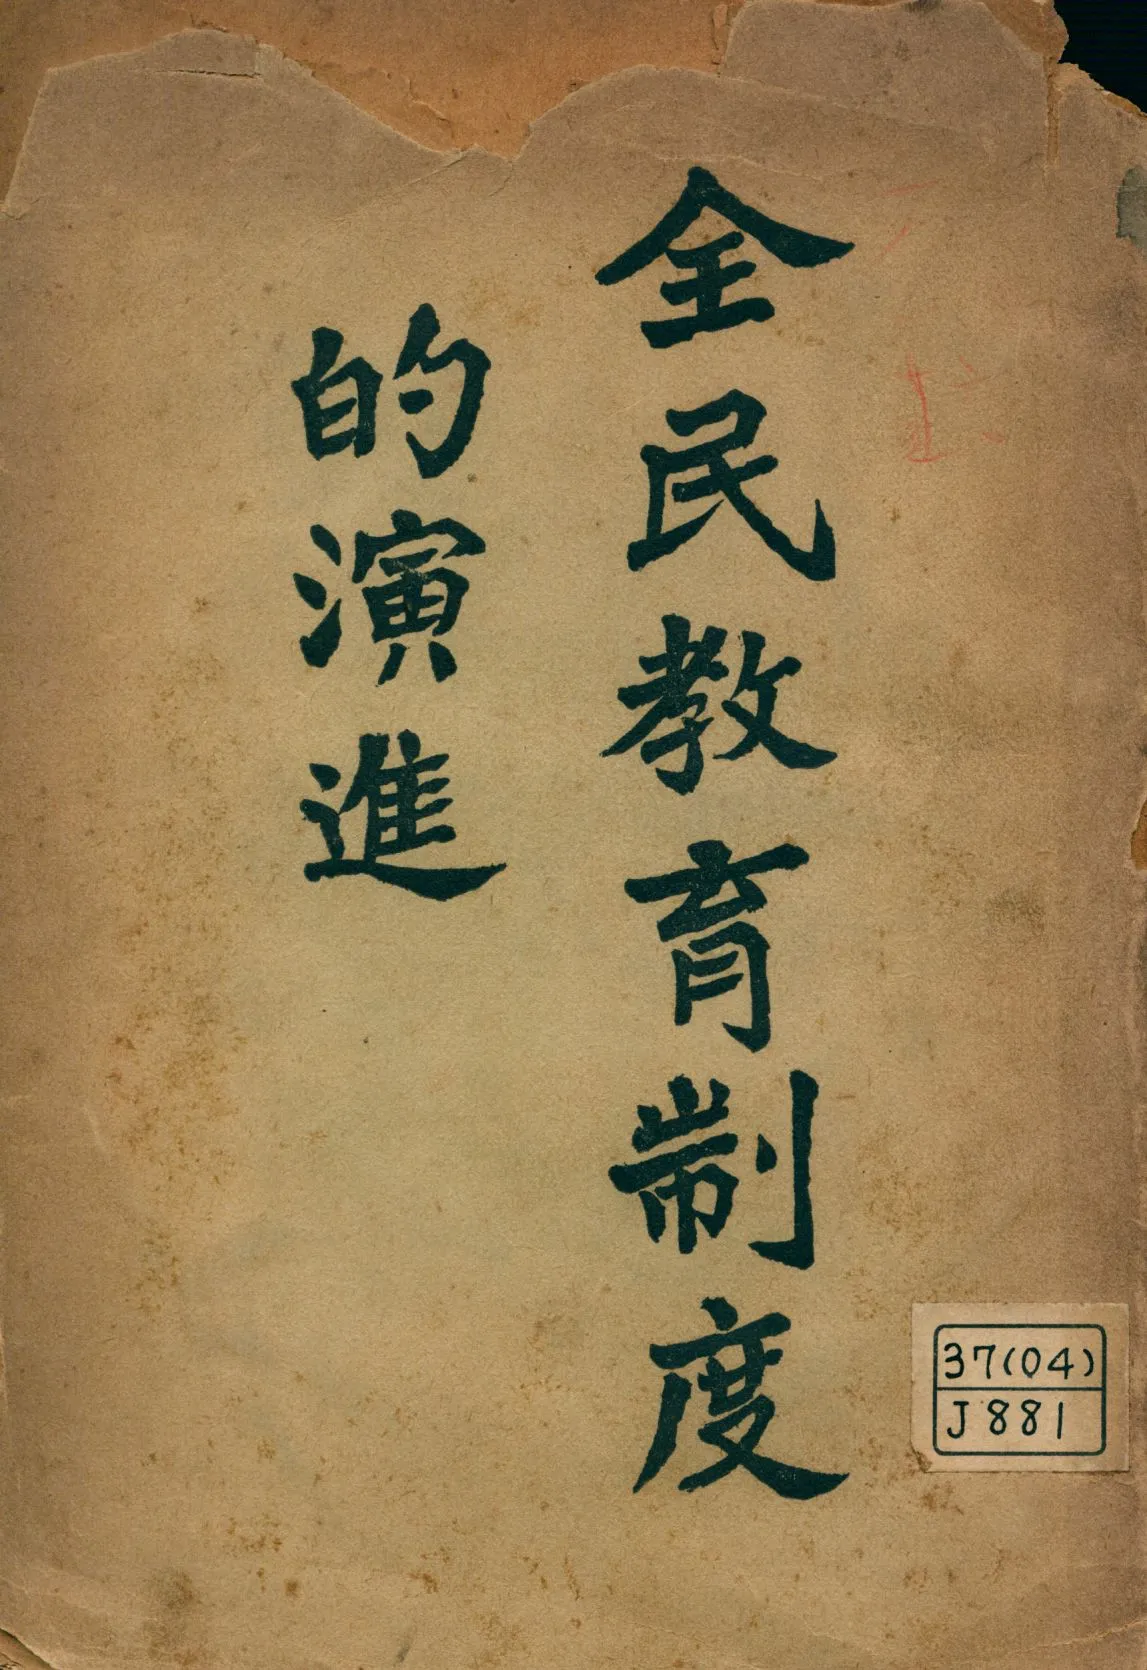 全民教育制度
的演進
37(04)
J881